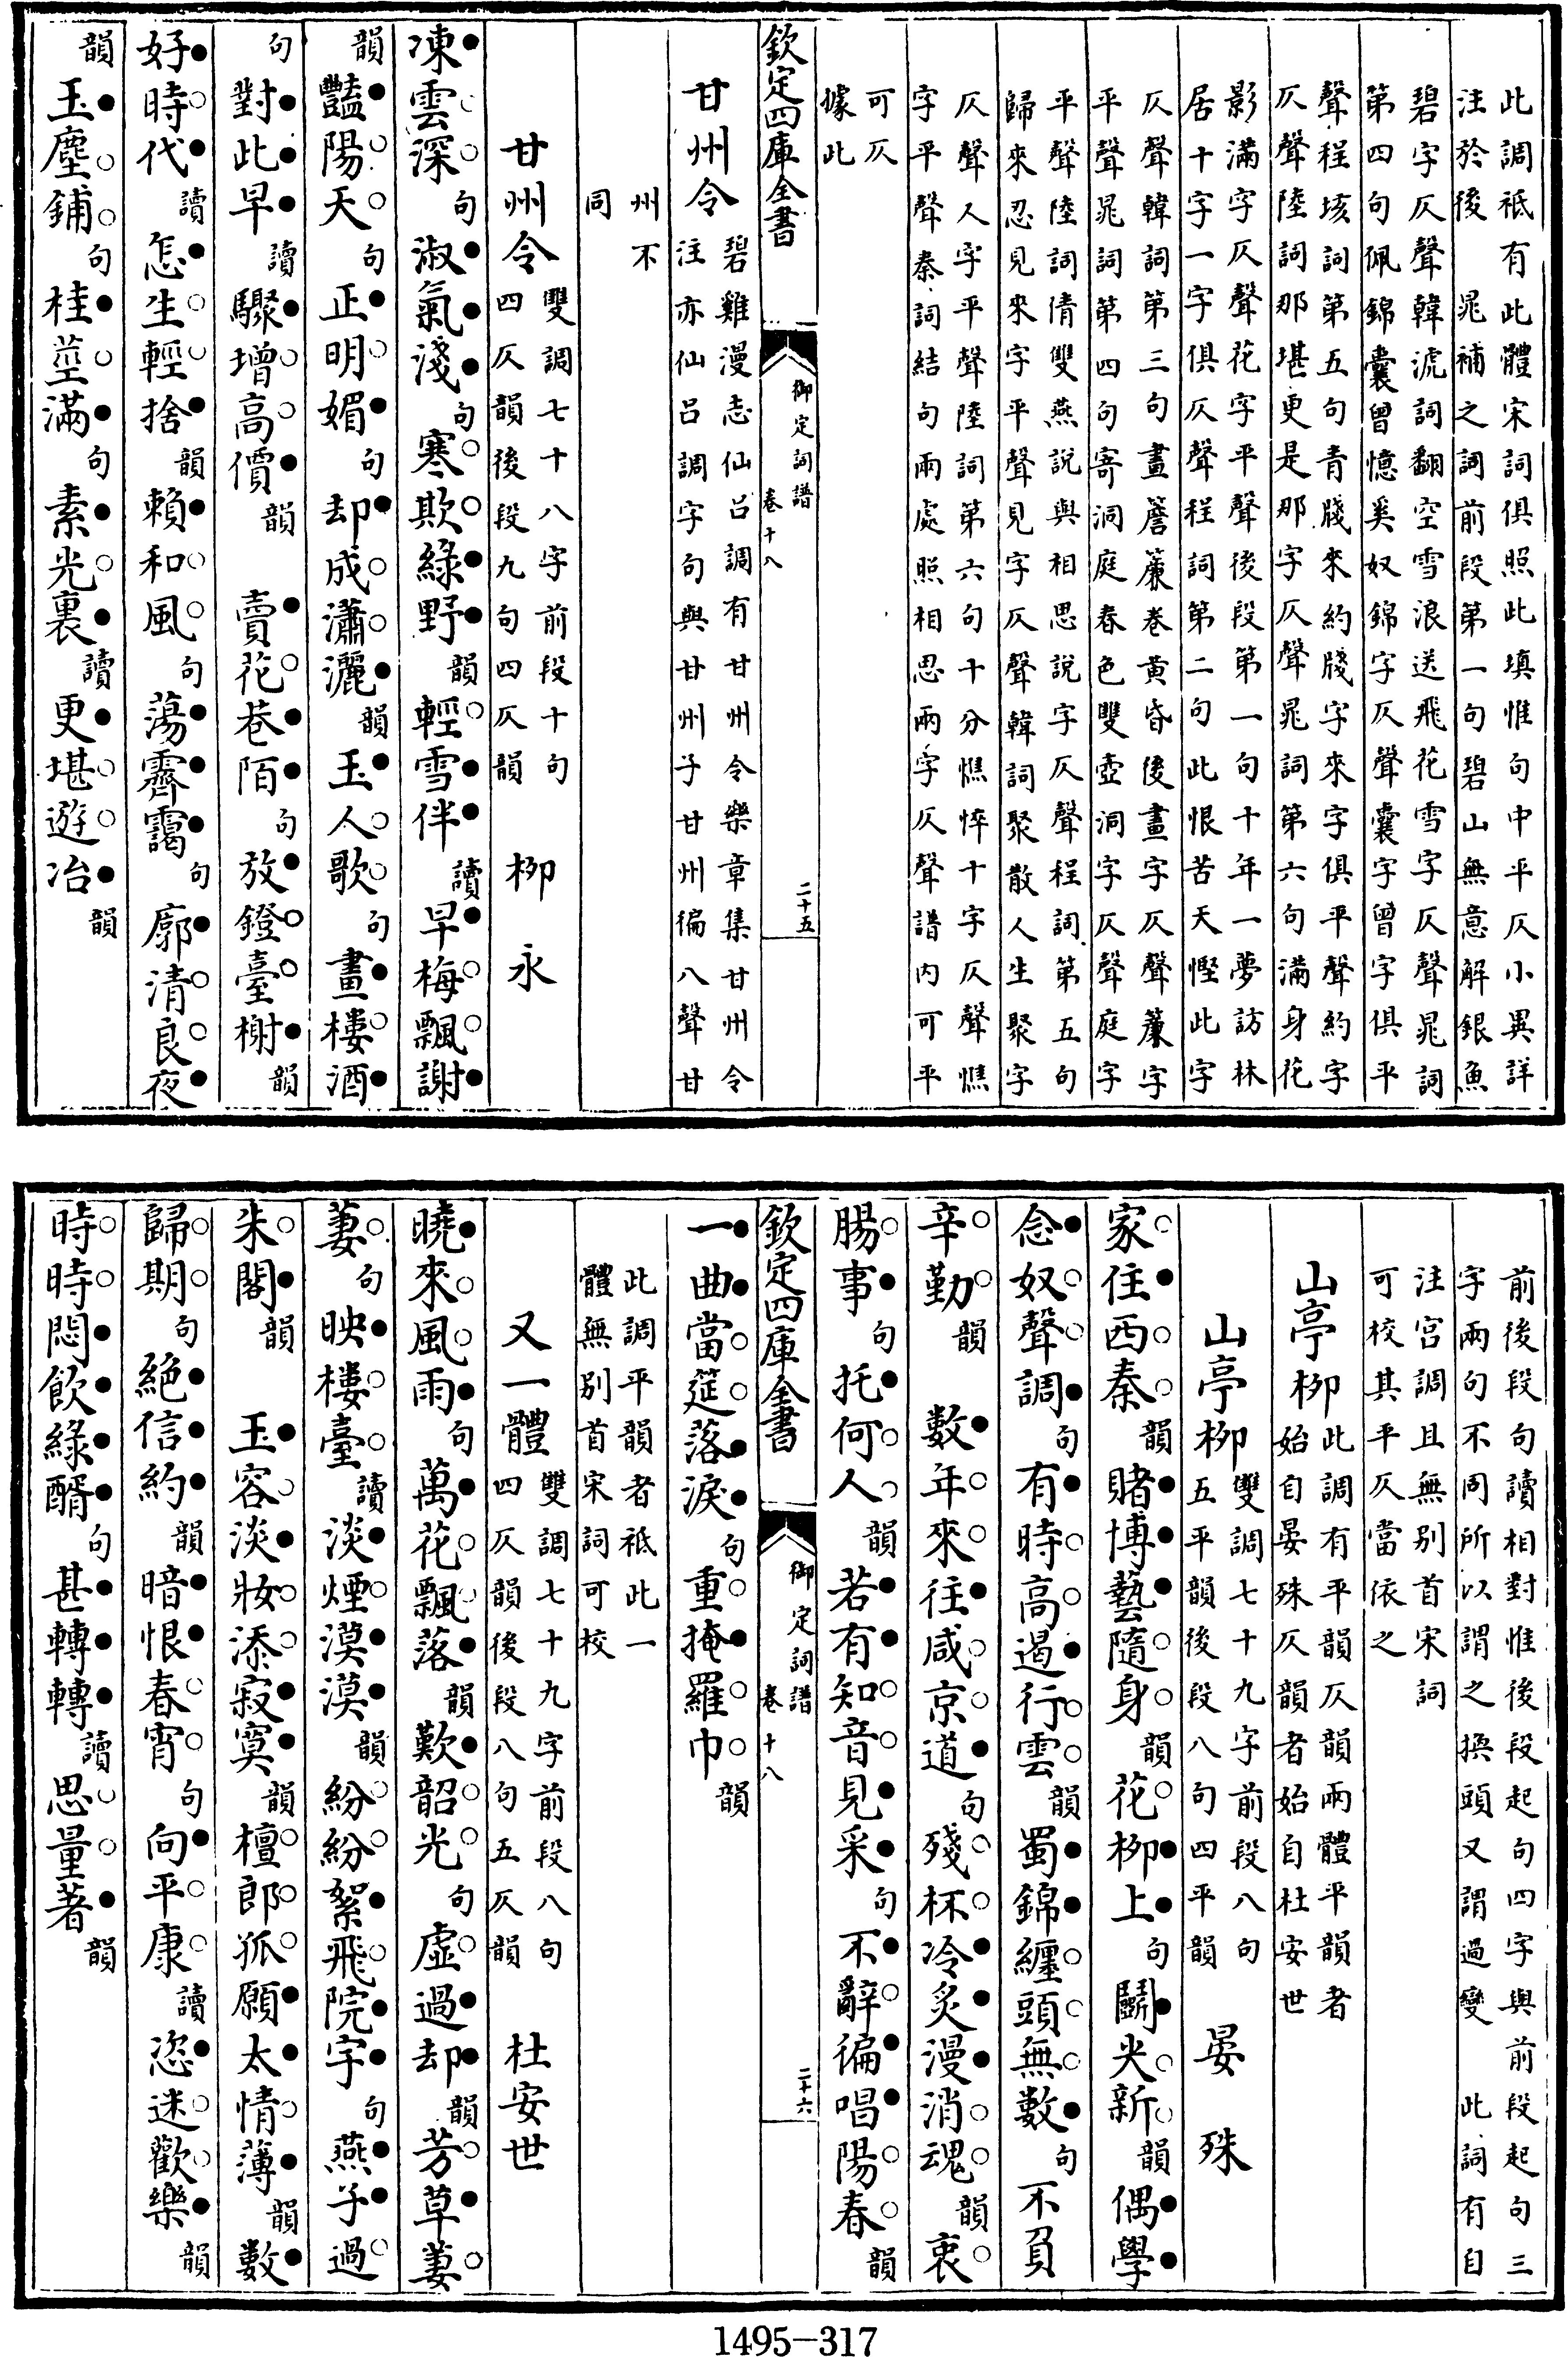 此調祗有此體宋詞俱照此填惟句中平仄小異詳
注於後　晁補之詞前段第一句碧山無意解銀魚
碧字仄聲韓淲詞翻空雪浪送飛花雪字仄聲晁詞
第四句佩錦囊曾憶奚奴錦字仄聲囊字曾字俱平
聲程垓詞第五句青牋來約牋字來字俱平聲約字
仄聲陸詞那堪更是那字仄聲晁詞第六句滿身花
影滿字仄聲花字平聲後段第一句十年一夢訪林
居十字一字俱仄聲程詞第二句此恨苦天慳此字
仄聲韓詞第三句畫簷簾卷黃昏後畫字仄聲簾字
平聲晁詞第四句寄洞庭春色雙壺洞字仄聲庭字
平聲陸詞倩雙燕說與相思說字仄聲程詞第五句
歸來忍見來字平聲見字仄聲韓詞聚散人生聚字
仄聲人字平聲陸詞第六句十分憔悴十字仄聲憔
字平聲秦詞結句兩處照相思兩字仄聲譜内可平
可仄
據此
欽定四庫全書　御定詞譜　卷十八　二十五
甘州令　碧雞漫志仙呂調有甘州令樂章集甘州令
注亦仙呂調字句與甘州子甘州徧八聲甘
州不
同
甘州令　雙調七十八字前段十句
四仄韻後段九句四仄韻　柳永
凍雲深句淑氣淺句寒欺綠野韻輕雪伴讀早梅飄謝
韻豔陽天句正明媚句却成瀟灑韻玉人歌句畫樓酒
句對此早讀驟增高價韻　賣花巷陌句放鐙臺榭韻
好時代讀怎生輕捨韻賴和風句蕩霽靄句廓清良夜
韻玉塵鋪句桂莖滿句素光裏讀更堪遊冶韻
前後段句讀相對惟後段起句四字與前段起句三
字兩句不同所以謂之換頭又謂過變　此詞有自
注宮調且無別首宋詞
可校其平仄當依之
山亭柳　此調有平韻仄韻兩體平韻者
始自晏殊仄韻者始自杜安世
山亭柳　雙調七十九字前段八句
五平韻後段八句四平韻　晏殊
家住西秦韻賭博藝隨身韻花柳上句鬭尖新韻偶學
念奴聲調句有時高遏行雲韻蜀錦纏頭無數句不負
辛勤韻　數年來往咸京道句殘杯冷炙漫消魂韻衷
腸事句托何人韻若有知音見采句不辭徧唱陽春韻
欽定四庫全書　御定詞譜　卷十八　二十六
一曲當筵落淚句重掩羅巾韻
此調平韻者祗此一
體無別首宋詞可校
又一體　雙調七十九字前段八句
四仄韻後段八句五仄韻　杜安世
曉來風雨句萬花飄落韻歎韶光句虛過却韻芳草萋
萋句映樓臺讀淡煙漠漠韻紛紛絮飛院宇句燕子過
朱閣韻　玉容淡妝添寂寞韻檀郎孤願太情薄韻數
歸期句絕信約韻暗恨春宵句向平康讀恣迷歡樂韻
時時悶飲綠醑句甚轉轉讀思量著韻
1495-317